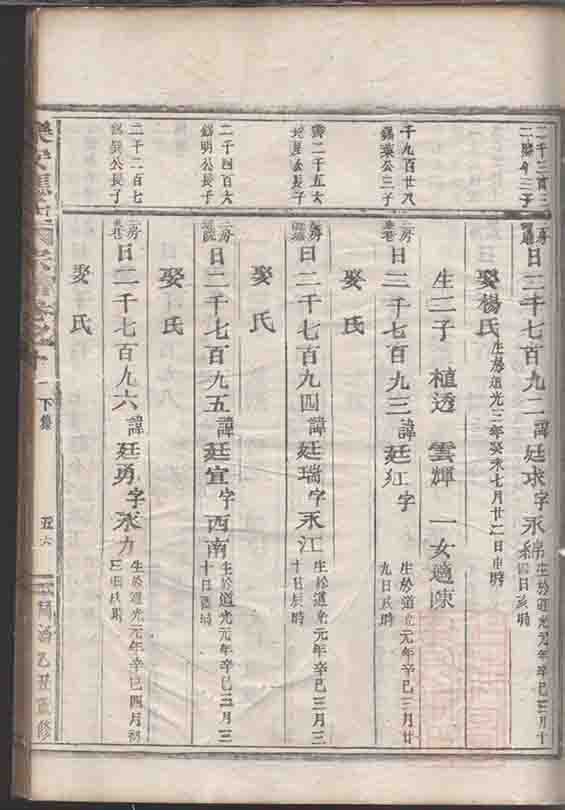 二千三百三
日二千七百九二諱廷球字永綿生於道光元年辛巳三月十四日亥時
娶楊氏生於道光三年癸未七月廿二日申時
生二子 植透 雲輝 一女適陳
千九百廿八
公三子
房
日二千七百九三諱廷紅字 生於道光元年辛巳三月廿九日亥時
娶 氏
二千五六
公長子
房
日二千七百九四諱廷瑞字永江生於道光元年辛巳三月三十日辰時
娶 氏
二千四百六
錫明公長子
二房
日二千七百九五諱廷宜字酉南生於道光元年辛巳三月三十日酉時
娶 氏
二千二百七
公長子
二房
日二千七百九六諱廷勇字永力生於道光元年辛巳四月初三日亥時
娶 氏
下集
五六
同治乙丑重修